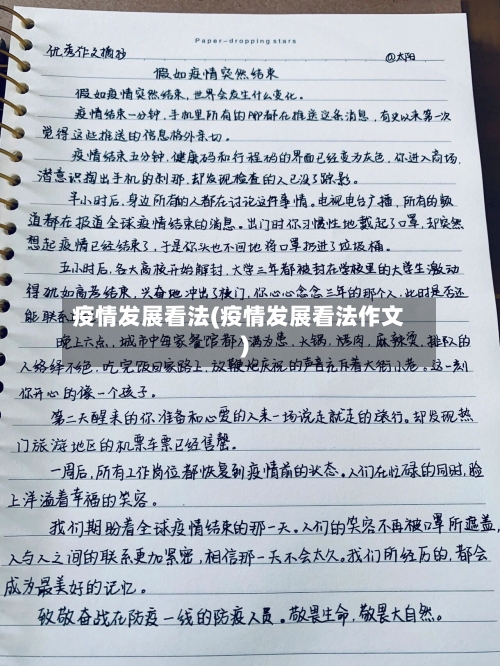 Paper-dropping stars
优秀作文摘抄
@太阳
假如疫情突然结束
假如疫情突然结束,世界会发生什么变化。
疫情结束一分钟,手机里所有的APP都在推送这条消息,有史以来第一次
觉得这些推送的信息格外亲切。
疫情结束五分钟,健康码和行程码的界面已经变为灰色,你进入商场,
潜意识掏出手机的刹那,却发现检查的人已没了踪影。
半小时后,身边所有的人都在讨论这件事情。电视电台广播,所有的频
道都在报道全球疫情结束的消息。出门时你习惯性地戴起了口罩,却突然
想起疫情已经结束了,于是你头也不回地将口罩扔进了垃圾桶。
五小时后,各大高校开始解封,大学三年都被封在学校里的大学生激动
得犹如高考结束,兴奋地冲出了校门,你心心念念三年的那个人,此时是否还
能联系
疫情发展看法(疫情发展看法作文
)
晚上六点,城市中每家餐馆都人满为患,火锅,烤肉,麻辣烫,排队的
人络绎不绝,吃完饭回家路上,放鞭炮庆祝的声音充斥着大街小巷。这一刻
你开心的像一个孩子。
第二天醒来的你准备和心爱的人来一场说走就走的旅行。却发现热
门旅游地区的机票车票已经售罄。
一周后,所有工作岗位都恢复到疫情前的状态。人们在忙碌的同时,脸
上洋溢着幸福的笑容。
我们期盼着全球疫情结束的那一天。人们的笑容不再被口罩所遮盖,
人与人之间的联系更加紧密,相信那一天不会太久。我们所经历的,都会
成为最美好的记忆。
致敬奋战在防疫一线的防疫人员。敬畏生命,敬畏大自然。